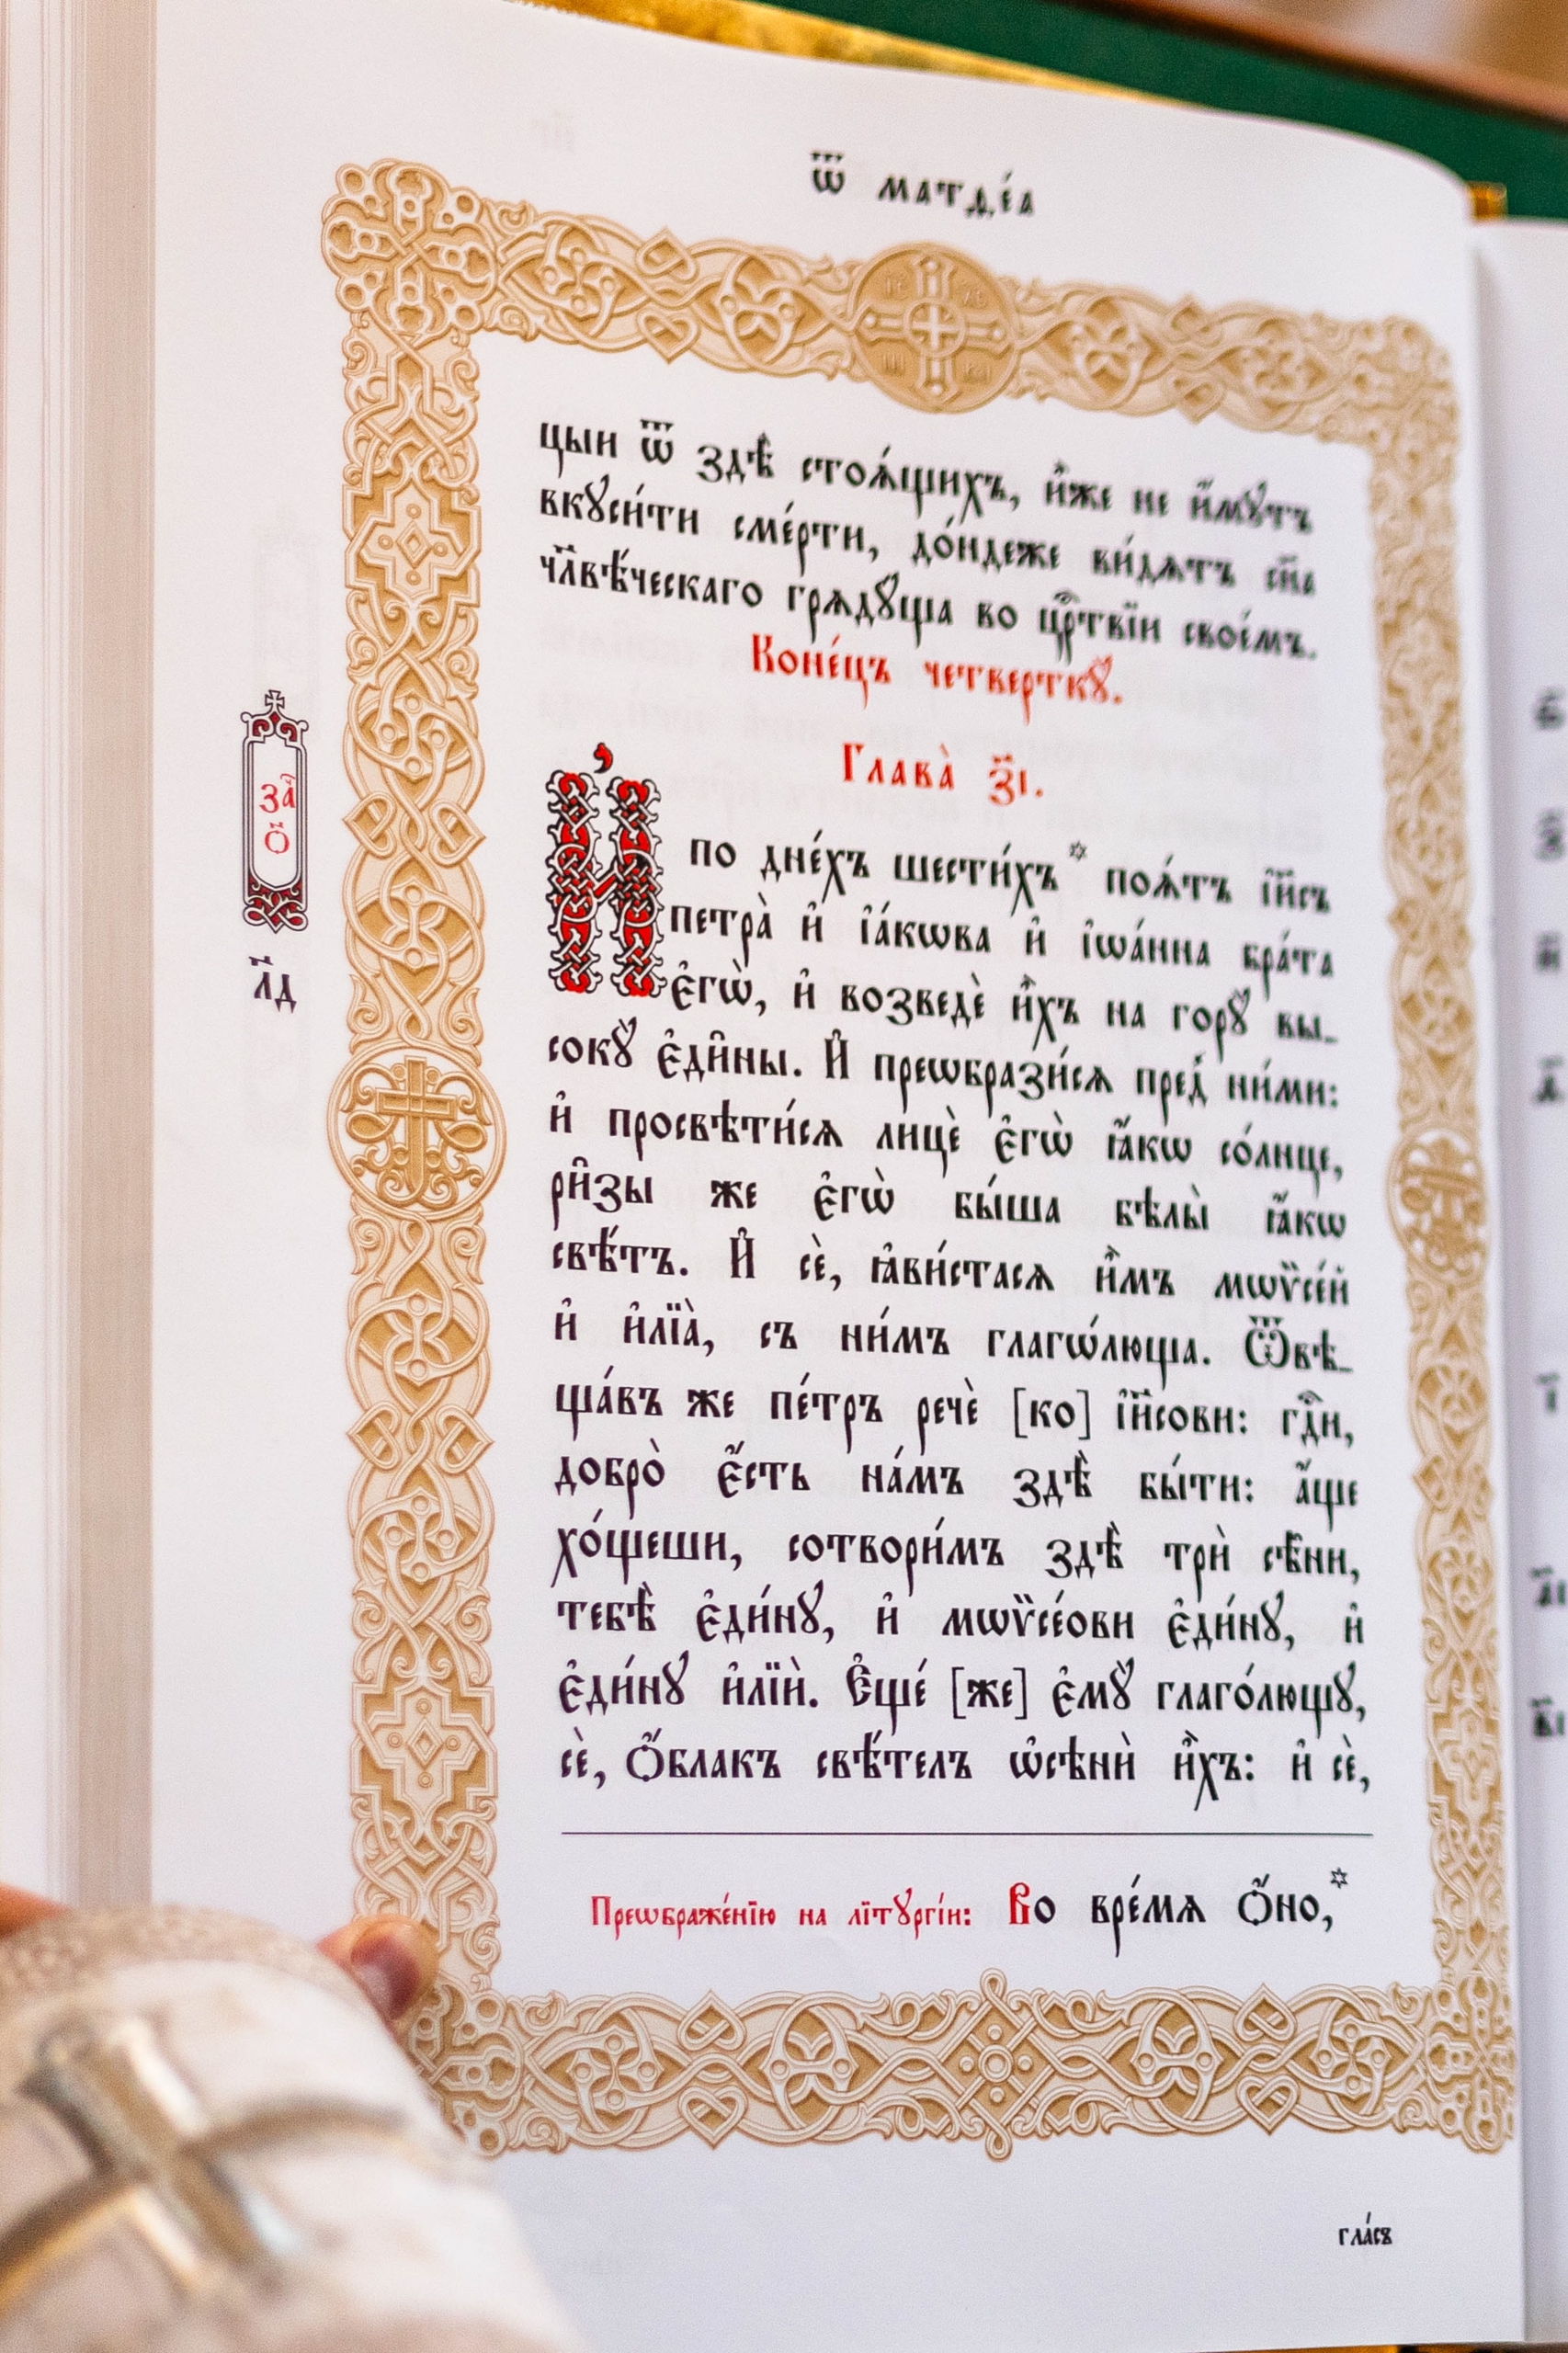 Ѿ матѳе́а
цыи ѿ здѣ̀ стоѧ́щихъ, и҆̀же не и҆́мꙋтъ
вкꙋси́ти сме́рти, до́ндеже ви́дѧтъ сн҃а
чл҃вѣ́ческаго грѧдꙋ́ща во црⷭ҇твїи свое́мъ.
Коне́цъ четверткꙋ̀.
Глава̀ з҃і.
за̀
ѻ҃
л҃д
И҆ по дне́хъ шести́хъ* поѧ́тъ і҆и҃съ
петра̀ и҆ і҆а́кѡва и҆ і҆ѡа́нна бра́та
є҆гѡ̀, и҆ возведѐ и҆̀хъ на горꙋ̀ вы_
сокꙋ̀ є҆ди̑ны. И҆ преѡбрази́сѧ пред̾ ни́ми:
и҆ просвѣти́сѧ лицѐ є҆гѡ̀ ꙗ҆́кѡ со́лнце,
ри̑зы же є҆гѡ̀ бы́ша бѣлы̀ ꙗ҆́кѡ
свѣ́тъ. И҆ сѐ, ꙗ҆ви́стасѧ и҆̀мъ мѡѷсе́й
и҆ и҆лїа̀, съ ни́мъ глагѡ́люща. Ѿвѣ_
ща́въ же пе́тръ речѐ [ко] і҆и҃сови: гдⷭ҇и,
добро̀ є҆́сть на́мъ здѣ̀ бы́ти: а҆́ще
хо́щеши, сотвори́мъ здѣ̀ трѝ сѣ̑ни,
тебѣ̀ є҆ди́нꙋ, и҆ мѡѷсе́ови є҆ди́нꙋ, и҆
є҆ди́нꙋ и҆лїѝ. Є҆ще́ [же] є҆мꙋ̀ глаго́лющꙋ,
сѐ, ѻ҆́блакъ свѣ́телъ ѡ҆сѣнѝ и҆̀хъ: и҆ сѐ,
Преѡбраже́нїю на лїтꙋргі́и: Во вре́мѧ ѻ҆́но,*
гла́съ